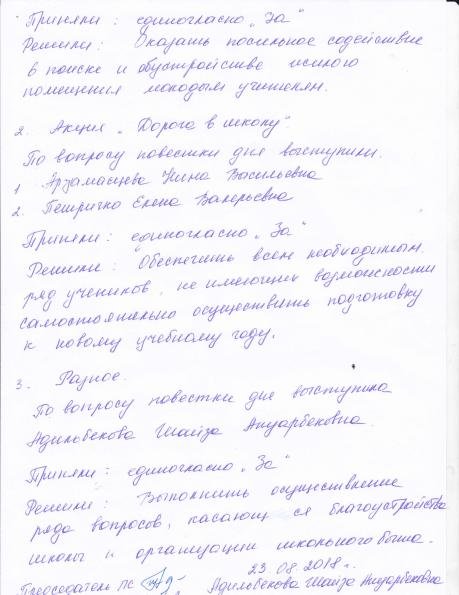 Приняли: единогласно „За"
Решили: Оказать посильное содействие
в поиске и обустройстве жилого
помещения молодым учителям.
2. Акция „Дорога в школу".
По вопросу повестки дня выступили.
1 Арзамасцева Нина Васильевна
2. Петричко Елена Валерьевна
Приняли: единогласно „За"
Решили: Обеспечить всем необходимым.
ряд учеников, не имеющих возможности
самостоятельно осуществить подготовку
к новому учебному году.
3. Разное.
По вопросу повестки дня выступила
Адильбекова Шайза Ануарбековна.
Приняли: единогласно „За"
Решили: Выполнить осуществление
ряда вопросов, касающихся благоустройства
школы и организации школьного быта.
23 08.2018г.
Председатель ПС Адильбекова Шайза Ануарбековна